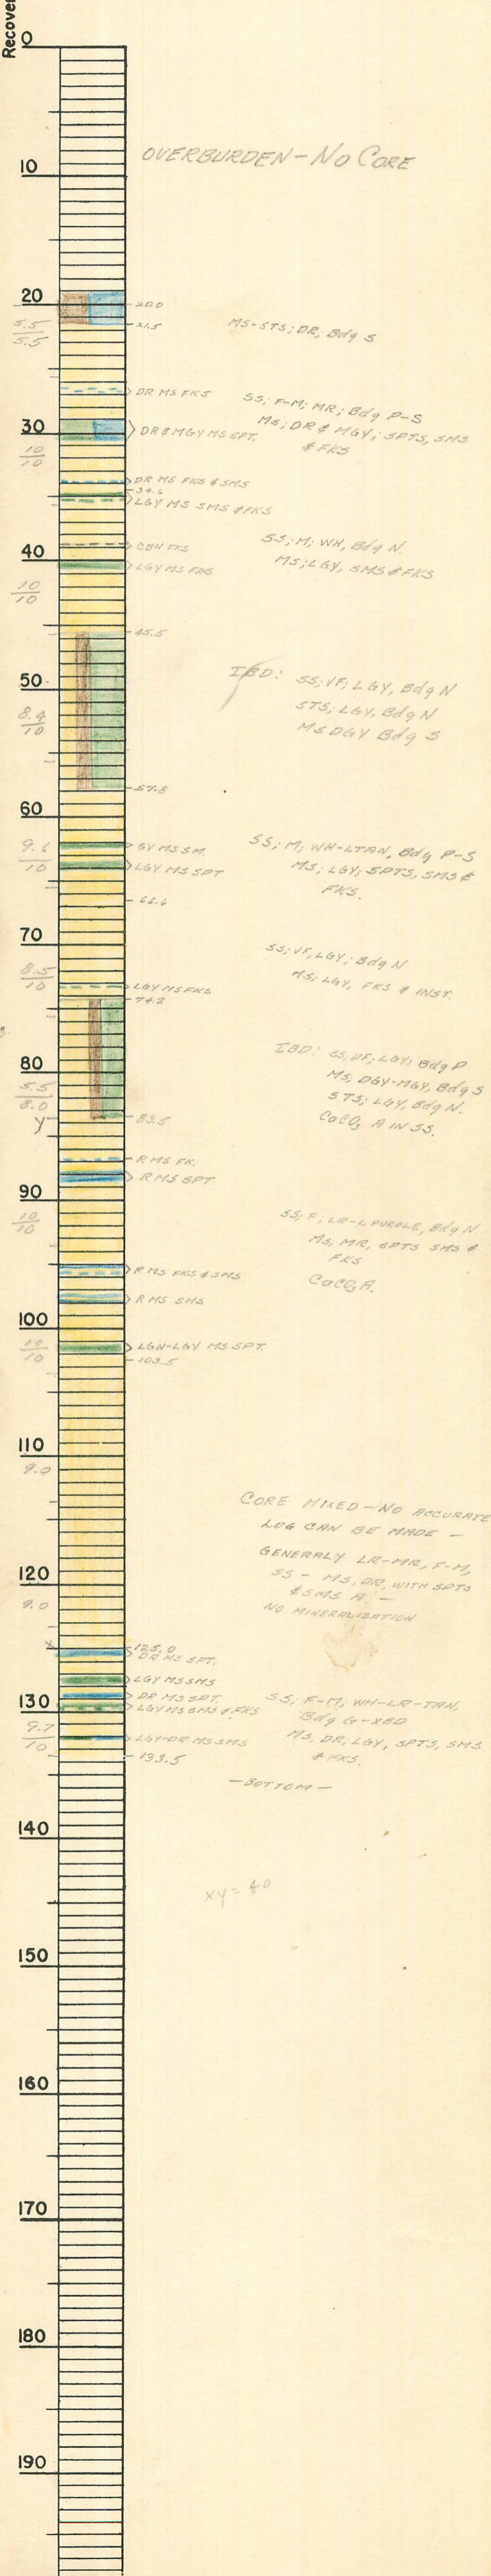 Recover
0
OVERBURDEN - NO CORE
10
20
20.0
21.5
MS-STS; DR, Bdg S
5.5
5.5
DR MS FKS
SS; F-M; MR; Bdg P-S
MS; DR & MGY; SPTS, SMS
& FKS
30
DR & MGY MS SPT.
10
10
DR MS FKS & SMS
34.6
LGY MS SMS & FKS
SS; M; WH, Bdg N.
MS; LGY, SMS & FKS
CBN FKS
40
LGY MS FKS
10
10
45.5
IBD: SS; VF; LGY, Bdg N
STS; LGY, Bdg N
MS DGY Bdg S
50
8.4
10
57.8
60
9.6
10
GY MS SM.
LGY MS SPT
SS; M; WH-LTAN, Bdg P-S
MS; LGY; SPTS, SMS &
FKS.
66.6
70
SS; VF, LGY; Bdg N
MS; LGY, FKS & INST.
8.5
10
LGY MS FKS
74.2
80
IBD: SS; VF; LGY; Bdg P
MS; DGY-MGY, Bdg S
STS; LGY, Bdg N.
CaCO3 A IN SS.
5.5
8.0
y
83.5
R MS FK.
R MS SPT
90
10
10
SS; F; LR-L PURPLE, Bdg N.
MS; MR, SPTS SMS &
FKS
CaCO3 A.
R MS FKS & SMS
R MS SMS
100
10
10
LGN-LGY MS SPT.
103.5
110
9.0
CORE MIXED - NO ACCURATE
LOG CAN BE MADE -
GENERALY LR-MR, F-M,
SS - MS, DR, WITH SPTS
& SMS A -
NO MINERALIZATION
120
9.0
x
125.0
DR MS SPT.
LGY MS SMS
DR MS SPT.
LGY MS SMS & FKS
130
SS; F-M; WH-LR-TAN,
Bdg G-XBD
MS, DR, LGY, SPTS, SMS
& FKS.
9.7
10
LGY-DR MS SMS
133.5
- BOTTOM -
140
xy = 40
150
160
170
180
190